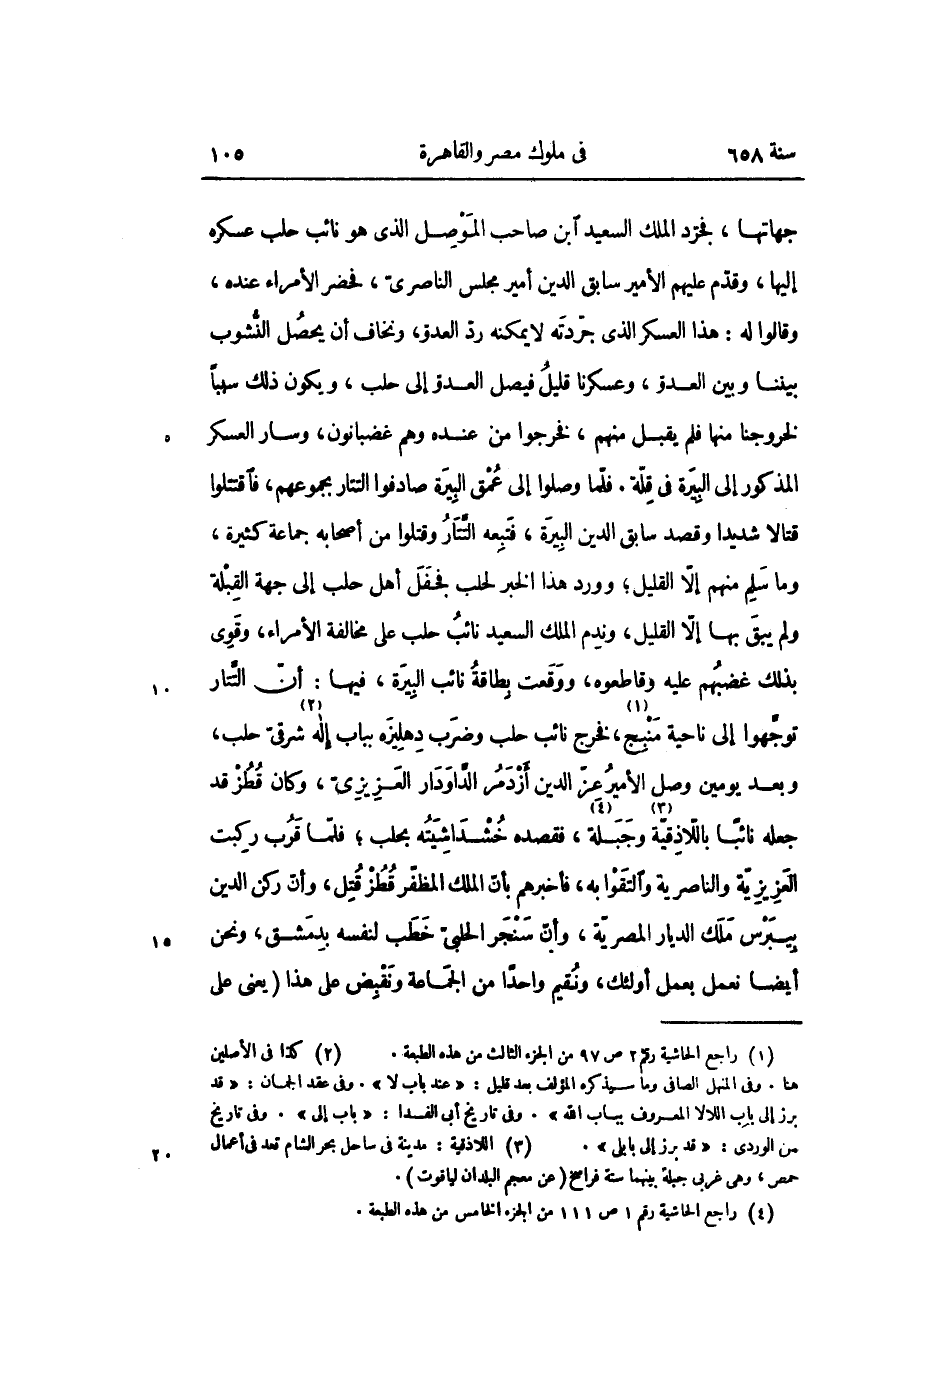 سنة ٦٥٨ فى ملوك مصر والقاهرة ١٠٥
جهاتها ، فجرّد الملك السعيد آبن صاحب المَوْصِل الذى هو نائب حلب عسكره
إليها ، وقدّم عليهم الأمير سابق الدين أمير مجلس الناصرىّ ، فحضر الأمراء عنده ،
وقالوا له : هذا العسكر الذى جرّدتَه لا يمكنه ردّ العدوّ، ونخاف أن يحصُل النُّشوب
بيننا وبين العدوّ ، وعسكرنا قليلُ فيصل العدوّ إلى حلب ، ويكون ذلك سببًا
لخروجنا منها فلم يقبل منهم ، فخرجوا من عنده وهم غضبانون، وسار العسكر ٥
المذكور إلى البِيَرة فى قِلّة . فلمّا وصلوا إلى عُمْق البِيَرة صادفوا التتار بجموعهم، فآقتتلوا
قتالا شديدا وقصد سابق الدين البِيَرة ، فَتَبِعه التَّتَارُ وقتلوا من أصحابه جماعة كثيرة ،
وما سَلِم منهم إلّا القليل؛ وورد هذا الخبر لحلب فجَفَلَ أهل حلب إلى جهة القِبْلة
ولم يبقَ بها إلّا القليل، وندِم الملك السعيد نائبُ حلب على مخالفة الأمراء، وقَوِى
بذلك غضبُهم عليه وقاطعوه، ووَقَعت بِطاقةُ نائب البِيَرة ، فيها : أنّ التَّتار ١٠
توجّهوا إلى ناحية مَنْبِج(١)، فخرج نائب حلب وضرَب دِهليزه بباب إلٰه(٢) شرقىّ حلب،
وبعد يومين وصل الأميرُ عزّ الدين أَزْدَمُر الدَّاوَدَار العَزِيزىّ ، وكان قُطُزْ قد
جعله نائبًا باللّاذِقيّة(٣) وجَبَلة(٤) ، فقصده خُشْدَاشِيَتُه بحلب ؛ فلمّا قَرُب ركِبت
العَزِيزِيّة والناصرية وآلتقَوْا به، فأخبرهم بأنّ الملك المظفّر قُطُزْ قُتِل، وأنّ ركن الدين
بِيبَرْس مَلَك الديار المصريّة ، وأنّ سَنْجَر الحلبىّ خَطَب لنفسه بدِمَشق، ونحن ١٥
أيضا نعمل بعمل أولئك، ونُقيم واحدًا من الجمّاعة ونَقْبِض على هذا ( يعنى على
(١) راجع الحاشية رقم ٢ ص ٩٧ من الجزء الثالث من هذه الطبعة . (٢) كذا فى الأصلين
هنا . وفى المنهل الصافى وما سيذكره المؤلف بعد قليل : « عند باب لا » . وفى عقد الجمان : « قد
برز إلى باب اللالا المعروف بباب الله » . وفى تاريخ أبى الفدا : « باب إلى » . وفى تاريخ
من الوردى : « قد برز إلى بابلى » . (٣) اللاذقية : مدينة فى ساحل بحر الشام تعد فى أعمال ٢٠
حمص ، وهى غربى جبلة بينهما ستة فراسخ ( عن معجم البلدان لياقوت ) .
(٤) راجع الحاشية رقم ١ ص ١١١ من الجزء الخامس من هذه الطبعة .